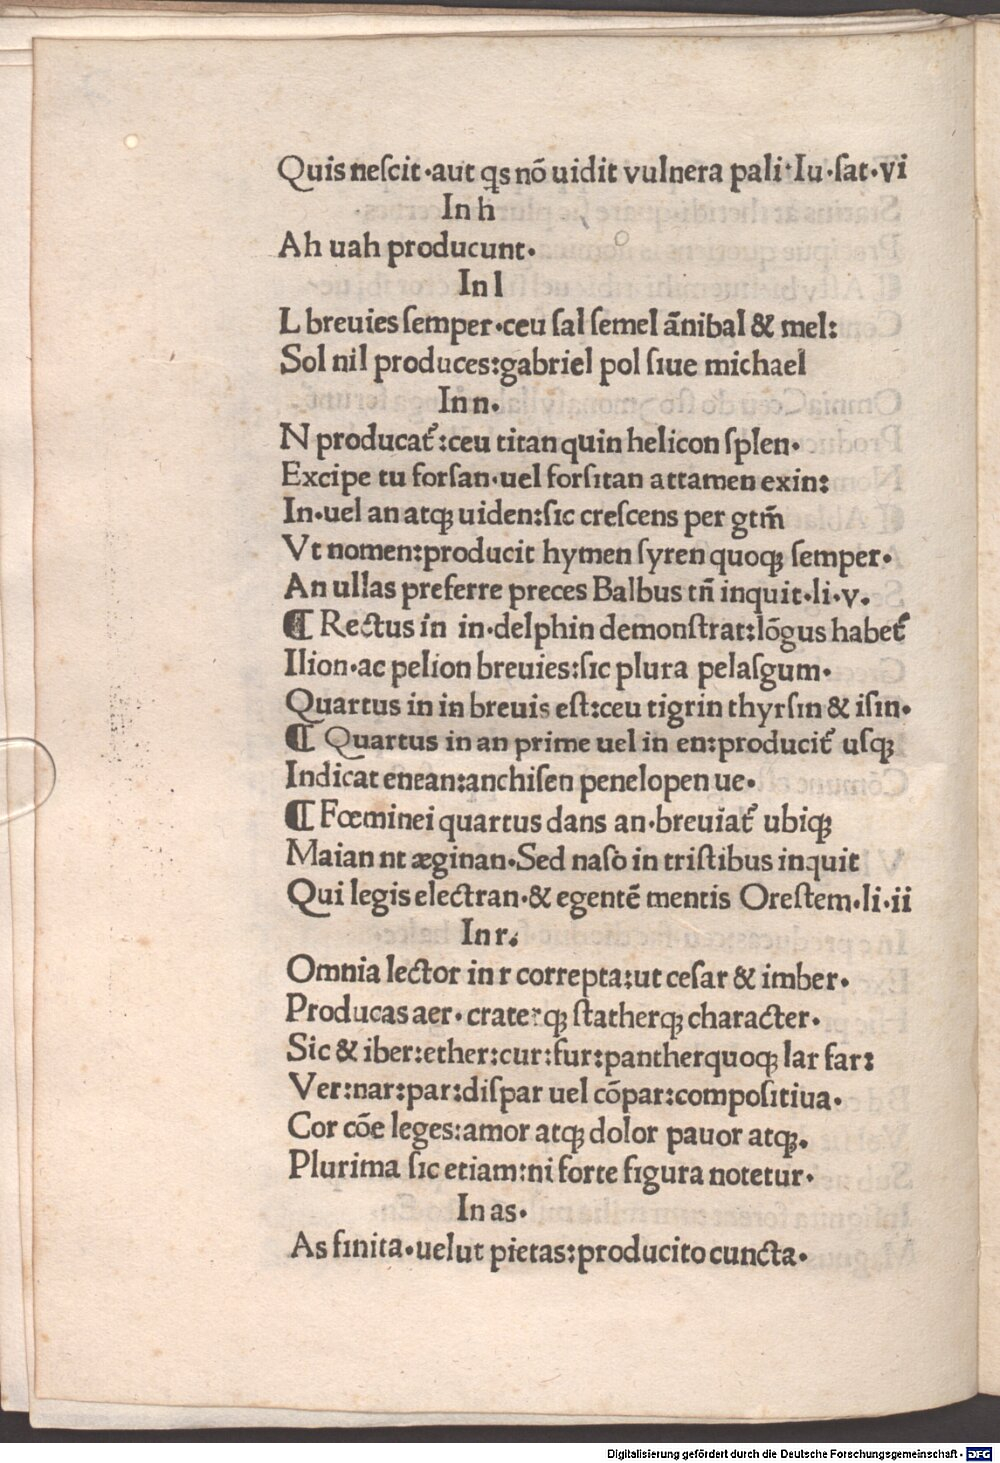 Quis neſcit·aut qs nõ uidit vulnera pali·Iu·ſat·vi
In h
Ah uah producunt·
In l
L breuies ſemper·ceu ſal ſemel ãnibal & mel:
Sol nil produces:gabriel pol ſiue michael
In n·
N producat᷑:ceu titan quin helicon ſplen·
Excipe tu forſan·uel forſitan attamen exin:
In·uel an atqꝫ uiden:ſic creſcens per gtm̃
Vt nomen:producit hymen ſyren quoqꝫ ſemper·
An ullas preferre preces Balbus tñ inquit·li·v.
¶ Rectus in in·delphin demonſtrat:lõgus habet᷑
Ilion·ac pelion breuies:ſic plura pelaſgum·
Quartus in in breuis eſt:ceu tigrin thyrſin & iſin·
¶ Quartus in an prime uel in en:producit᷑ uſqꝫ
Indicat enean:anchiſen penelopen ue·
¶ Fœminei quartus dans an·breuiat᷑ ubiqꝫ
Maian nt æginan·Sed naſo in triſtibus inquit
Qui legis electran·& egentẽ mentis Oreſtem·li·ii
In r.
Omnia lector in r correpta:ut ceſar & imber·
Producas aer·craterqꝫ ſtatherqꝫ character·
Sic & iber:ether:cur:fur:panther quoqꝫ lar far:
Ver:nar:par:diſpar uel cõpar:compoſitiua·
Cor cõe leges:amor atqꝫ dolor pauor atqꝫ.
Plurima ſic etiam:ni forte figura notetur·
In as·
As finita·uelut pietas:producito cuncta·
Digitalisierung gefördert durch die Deutsche Forschungsgemeinschaft - DFG